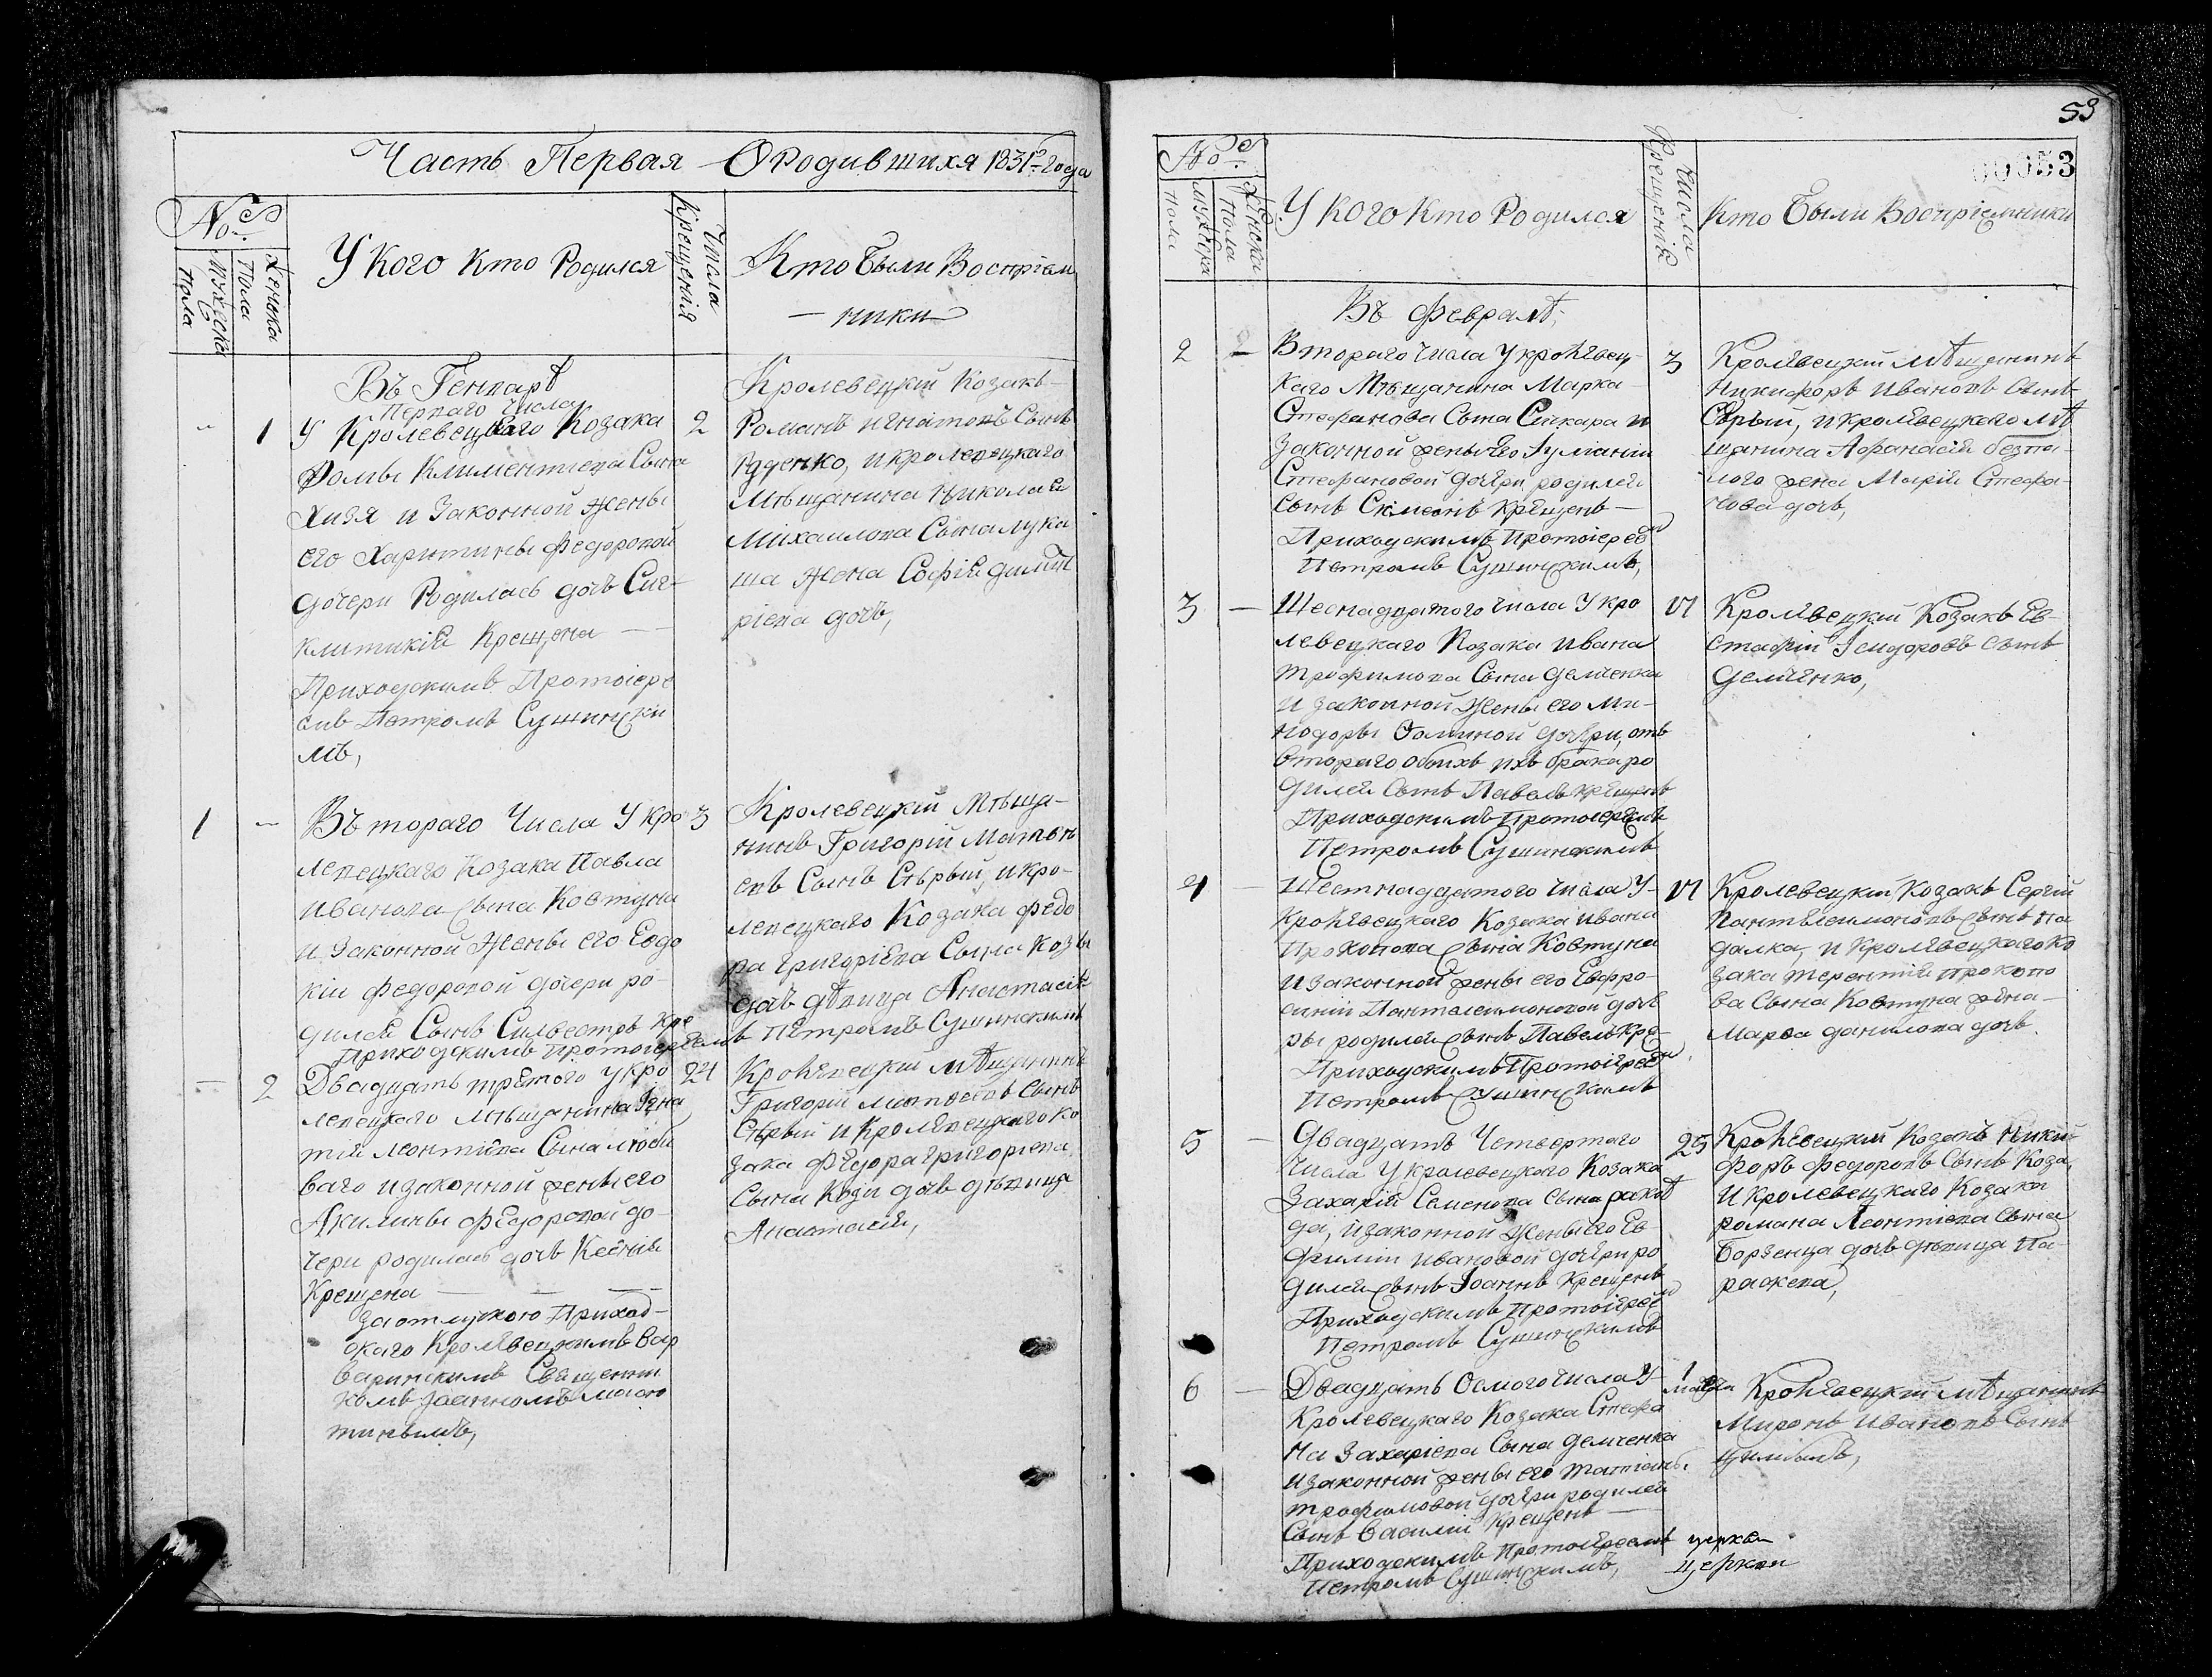 Часть Первая О Родившихся 1831го года
№е
Мужеска Пола
Женска Пола
У Кого Кто Родился
Числа Крещенія
Кто Были Воспріем
ники
Въ Генварѣ
Перваго Числа
1 У Кролевецкаго Козака 2
Фомы Климентіева Сына
Хизя и Законной Жены
его Харитины Федоровой
дочери Родилась дочь Син-
клитикія Крещена
Приходскимъ Протоіере
емъ Петромъ Сушински
мъ,
Кролевецкій Козакъ
Романъ Игнатовъ Сынъ
Руденко, и кролевецкаго
Мѣщанина Николая
Михаилова Сына Лука
ша Жена Софія Димит
ріева дочь,
1 Въ тораго Числа У кро 3
левецкаго Козака Павла
Иванова Сына Ковтуна
и Законной Жены его Евдо
кіи Федоровой дочери ро-
дился Сынъ Силвестръ кре
Приходскимъ Протоіереемъ Петромъ Сушинскимъ
Кролевецкій Мѣща-
нинъ Григорій Матвѣ
евъ Сынъ Сѣрый, и кро-
левецкаго Козака Федо
ра Григоріева Сына Козы
дочь дѣвица Анастасія
2 Двадцать третого У кро 24
левецкаго Мѣщанина Игна
тія Леонтіева Сына
ваго и законной жены его
Акилины Федоровой до-
чери родилась дочь Ксенія
Крещена
за отлучкою Приход-
скаго Кролевецкимъ Вар
варинскимъ Священни
комъ Іоанномъ
Кролевецкій Мѣщанинъ
Григорій Матвѣевъ Сынъ
Сѣрый и Кролевецкаго Ко
зака Федора Григоріева
Сына Кози дочь дѣвица
Анастасія,
53
00053
№е
Мужеска Пола
Женска Пола
У кого кто Родился
Числа Крещенія
Кто Были Воспріемники
Въ Февралѣ,
2 Втораго Числа У кролѣвец- 3
каго Мѣщанина Марка
Стефанова Сына Сѣкара и
Законной жены его Іуліаніи
Стефановой дочери родился
сынъ Симеонъ Крещенъ
Приходскимъ Протоіереем
Петромъ Сушинскимъ,
Кролѣвецкій Мѣщанинъ
Никифоръ Ивановъ Сынъ
Сѣрый, и кролѣвецкаго мѣ
щанина Афанасія
жена Марія Стефа-
нова дочь,
3 Шеснадцатого Числа У кро 17
левецкаго Козака Ивана
Трофимова Сына Демченка
и законной Жены его Ми-
нодоры Фоминой дочери, отъ
втораго обоихъ ихъ брака ро
дился Сынъ Павелъ крещенъ
Приходскимъ Протоіереемъ
Петромъ Сушинскимъ
Кролѣвецкій Козакъ Ев-
стафій Ісидоровъ Сынъ
Демченко,
4 Шестнадцатого Числа У 17
Кролѣвецкаго Козака Ивана
Прокопова Сына Ковтуна
и законной жены его Евфро-
синіи Пантелеимоновой доче
ры родился Сынъ Павелъ Кре-
Приходскимъ Протоіереем
Петромъ Сушинскимъ
Кролевецкій Козакъ Сергій
Пантелеимоновъ Сынъ Па
далка, и Кролѣвецкаго Ко
зака Терентія Прокопо
ва Сына Ковтуна жена
Марфа Данилова дочь.
5 Двадцать Четвертого 25
Числа У кролевецкаго Козака
Захарія Семенова Сына
да, и законной Жены его Ев
филіи Ивановой дочери ро
дился Сынъ Іоаннъ Крещенъ
Приходскимъ Протоіереем
Петромъ Сушинскимъ
Кролѣвецкій Козакъ Ники-
форъ Федоровъ Сынъ Коза,
и кролевецкаго Козака
Романа Леонтіева Сына
Борзенца дочь дѣвица Па-
раскева,
6 Двадцать Осмого Числа У 1 марта
Кролевецкаго Козака Стефа
на Захаріева Сына Демченка
и законной жены его Татіаны
Трофимовой дочери родился
Сынъ Василій Крещенъ
Приходскимъ Протоіереемъ
Петромъ Сушинскимъ,
Кролѣвецкій Мѣщанинъ
Миронъ Ивановъ Сынъ
Цимбалъ,
церкви